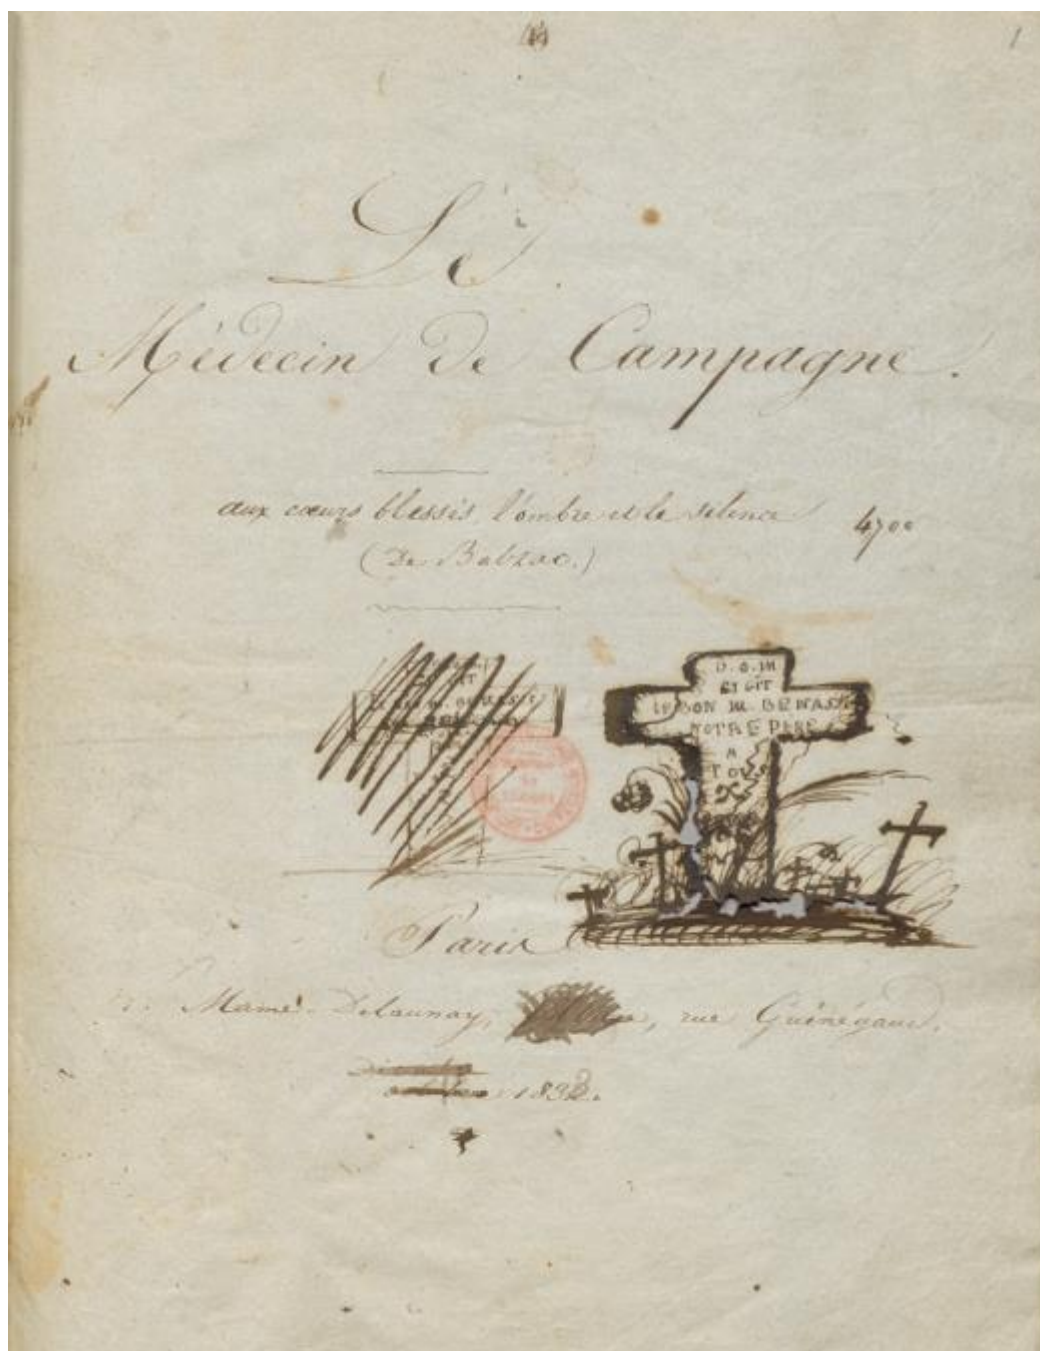 1
Le
Médecin de Campagne.
aux cœurs blessés, l'ombre et le silence
4700
(De Balzac.)
D. O. M
CI GIT
LE BON M. BENASSIS
NOTRE PÈRE
A
TOUS
Paris
Mame-Delaunay, rue Guénégaud.
octobre 1832.